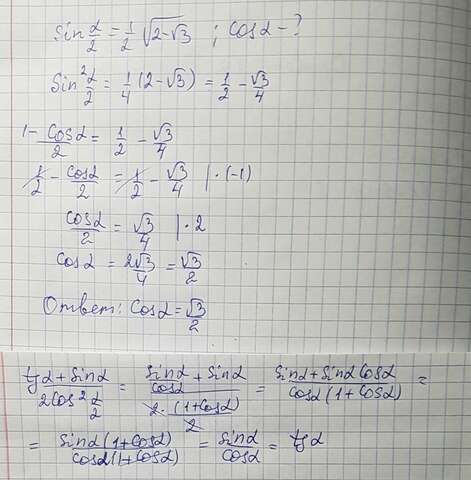 Sin α/2 = 1/2 √(2-√3) ; Cosα-?
Sin² α/2 = 1/4 (2-√3) = 1/2 - √3/4
(1-Cosα)/2 = 1/2 - √3/4
1/2 - Cosα/2 = 1/2 - √3/4 | · (-1)
Cosα/2 = √3/4 | · 2
Cosα = 2√3/4 = √3/2
Ответ: Cosα = √3/2
(tgα + Sinα)/(2Cos² α/2) = (Sinα/Cosα + Sinα)/(2 · (1+Cosα)/2) = (Sinα + Sinα Cosα)/(Cosα (1+Cosα)) =
= (Sinα (1+Cosα))/(Cosα (1+Cosα)) = Sinα/Cosα = tgα